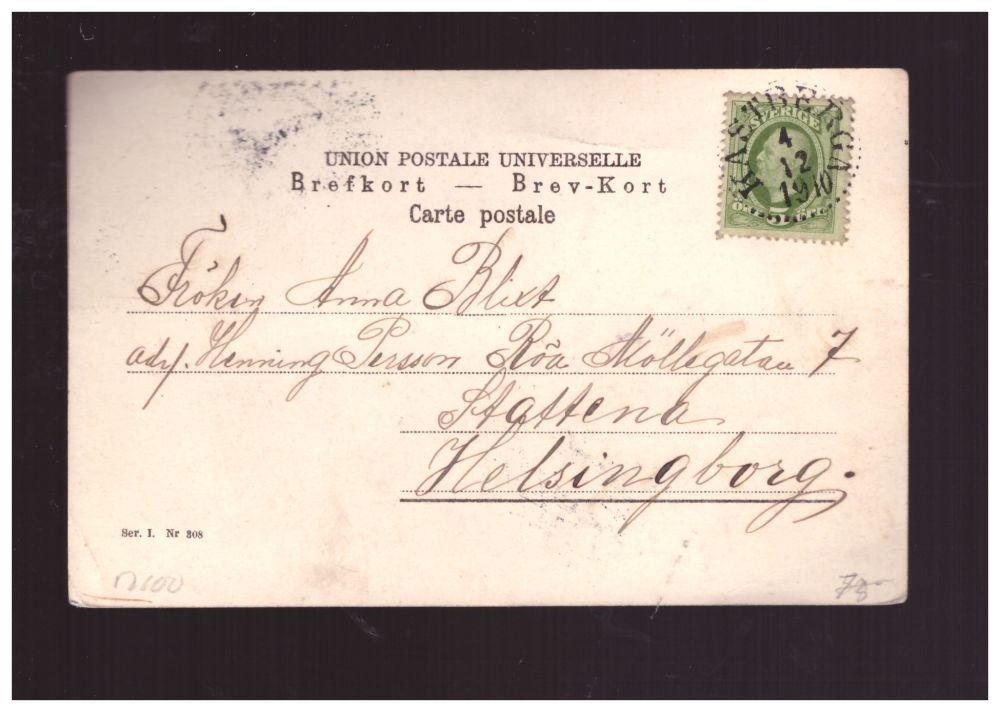 UNION POSTALE UNIVERSELLE
Brefkort — Brev-Kort
Carte postale
SVERIGE
KASTBERGA
4
12
1910
Fröken Anna Blixt
adr. Henning Persson Röa Möllegatan 7
Stattena
Helsingborg.
Ser. I. Nr 308